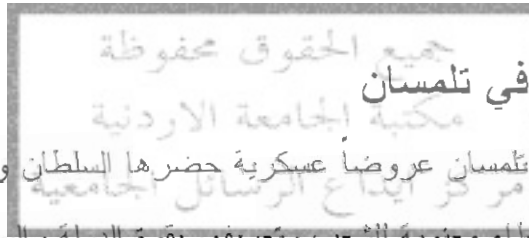 جميع الحقوق محفوظة
في تلمسان
مكتبة الجامعة الاردنية
تلمسان عروضاً عسكرية حضرها السلطان و
مركز ايداع الرسائل الجامعية